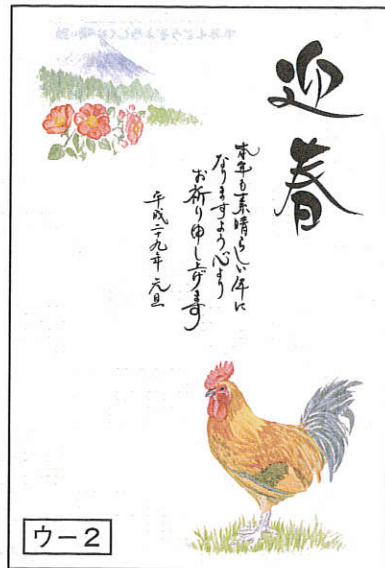 迎春
本年も素晴らしい年に
なりますよう心より
お祈り申し上げます
平成二十九年 元旦
ウー2